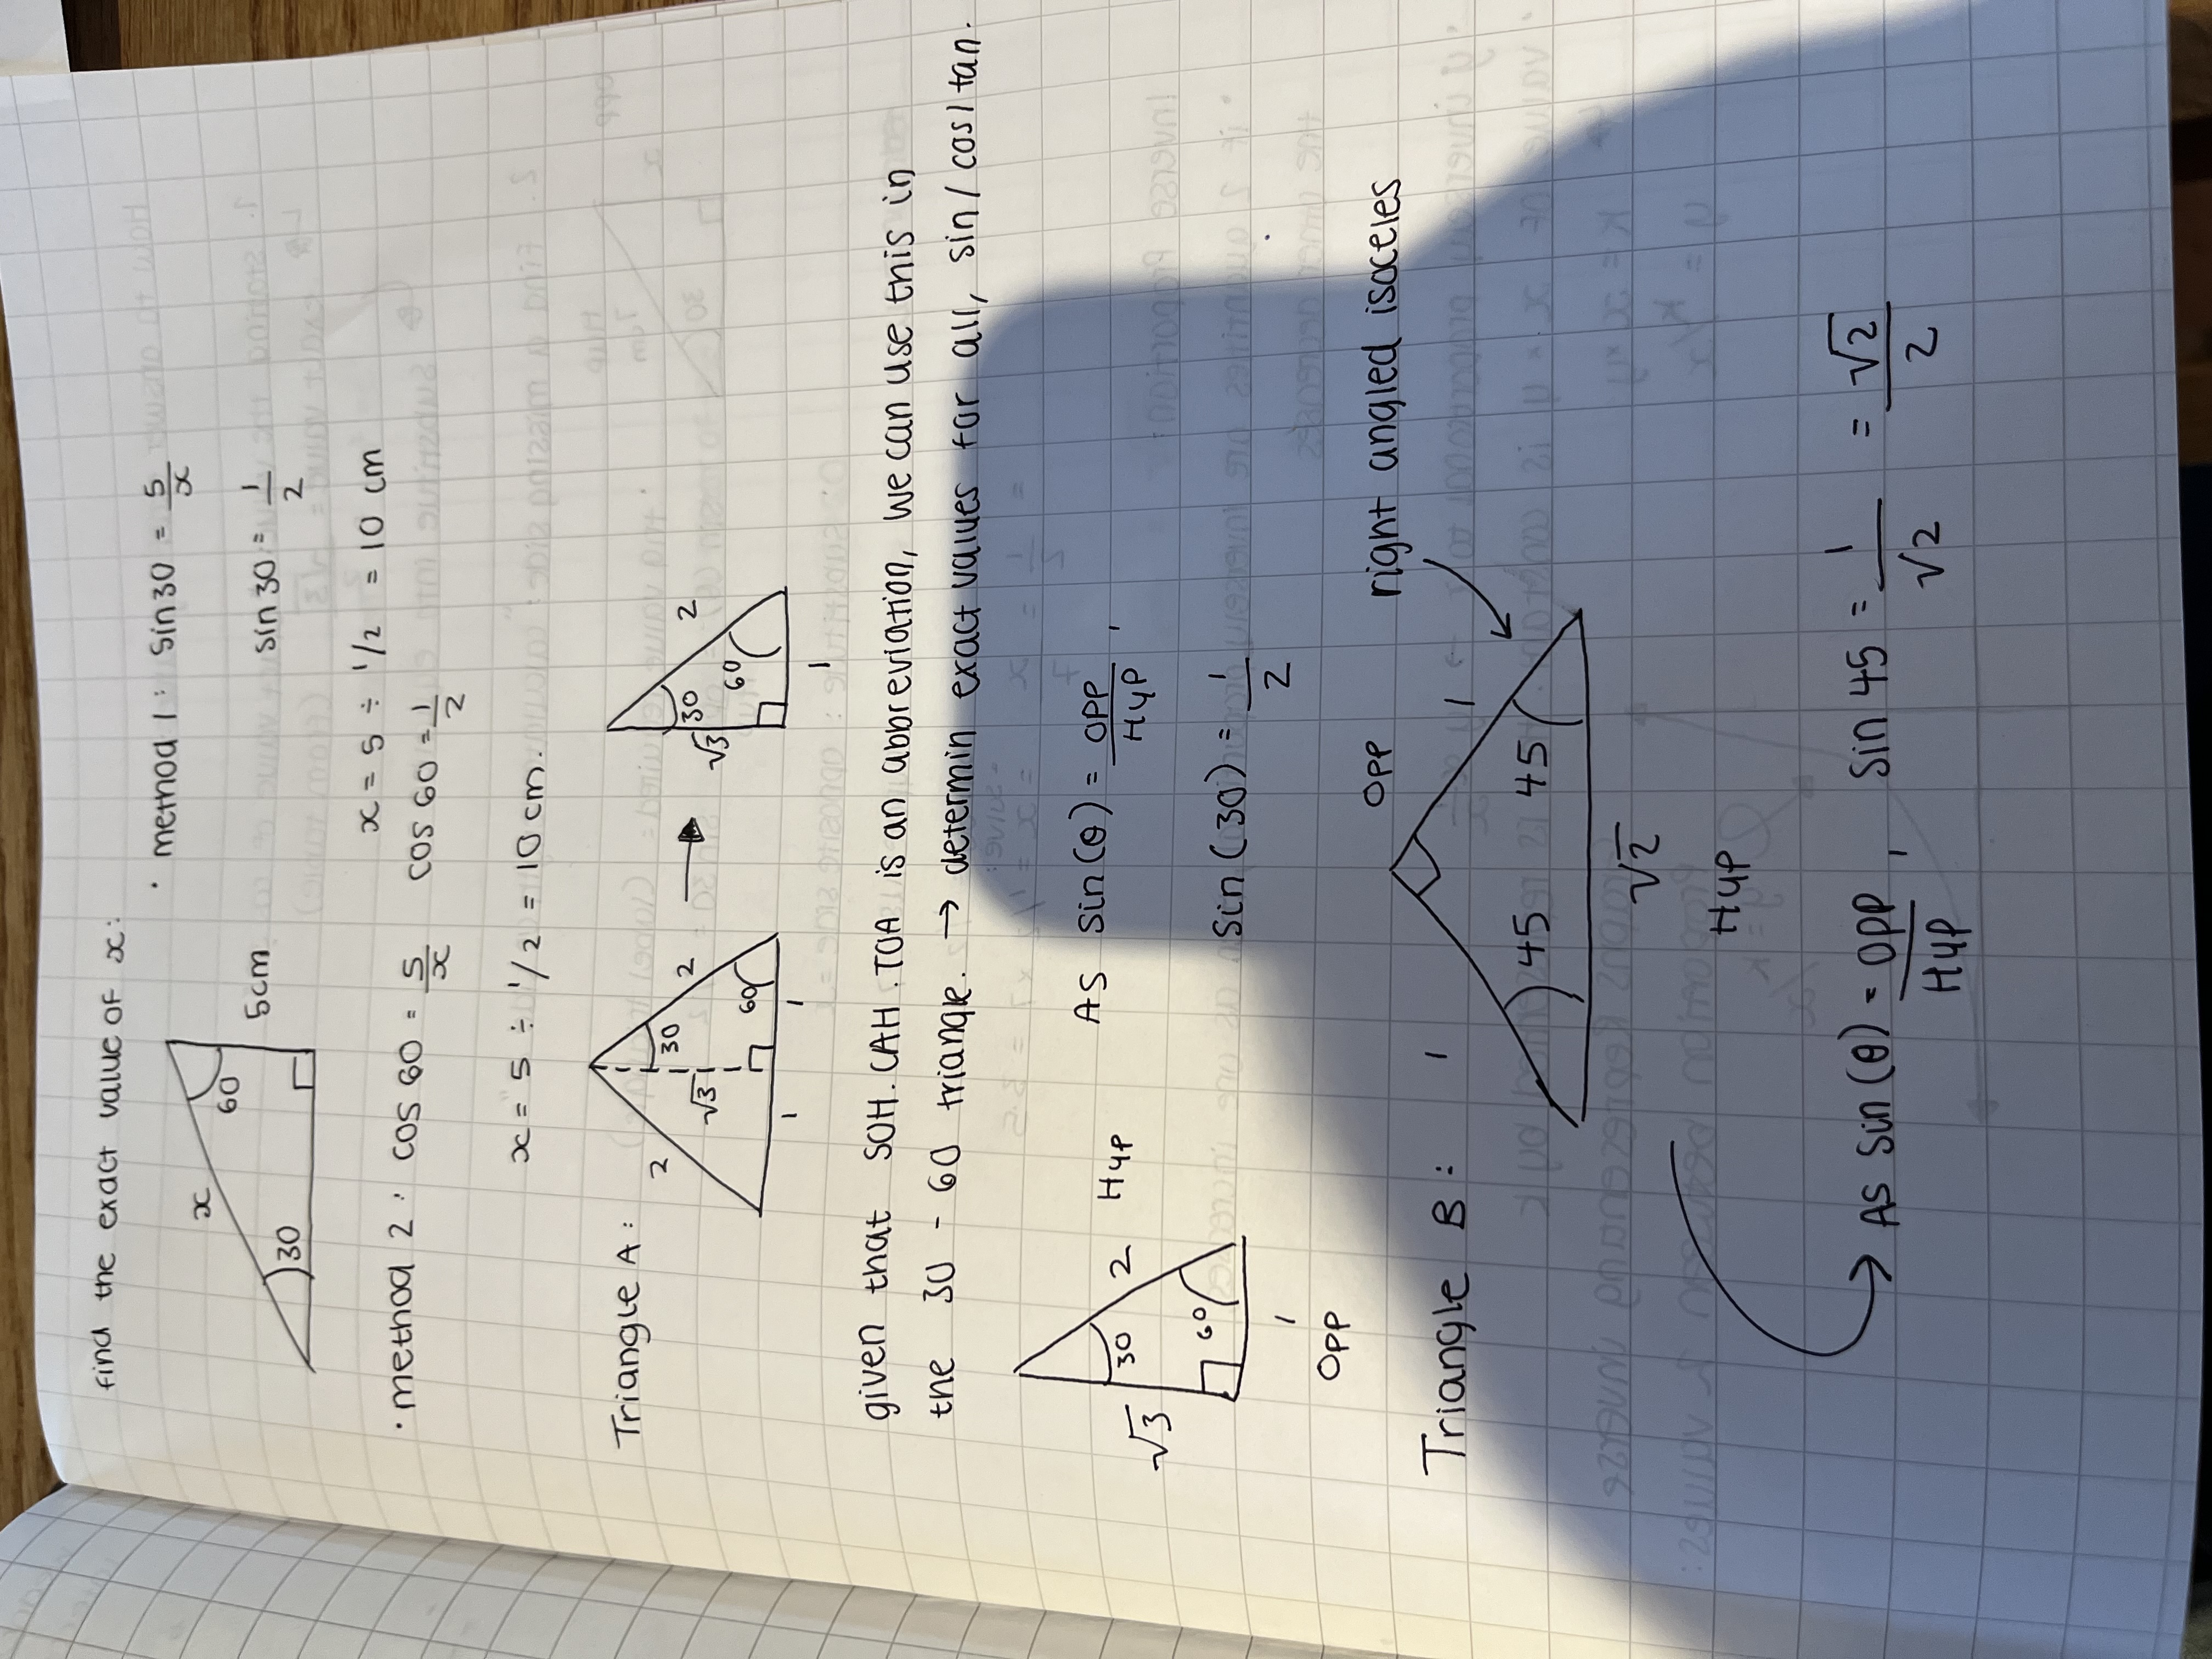 find the exact value of x:
x
60
30
5cm
· method 1: sin30 = 5/x
sin30 = 1/2
x = 5 ÷ 1/2 = 10 cm
· method 2: cos 60 = 5/x cos 60 = 1/2
x = 5 ÷ 1/2 = 10 cm.
Triangle A:
2 √3 30 2 60 1 1
→
√3 30 2 60 1
given that SOH.CAH.TOA is an abbreviation, we can use this in
the 30 - 60 triangle. → determin exact values for all, sin/cos/tan.
√3 30 2 Hyp
60
1
Opp
As sin(θ) = Opp/Hyp,
sin(30) = 1/2
Triangle B:
1 Opp 1
45 45
√2
Hyp
right angled isoceles
→ As sin(θ) = Opp/Hyp, sin 45 = 1/√2 = √2/2